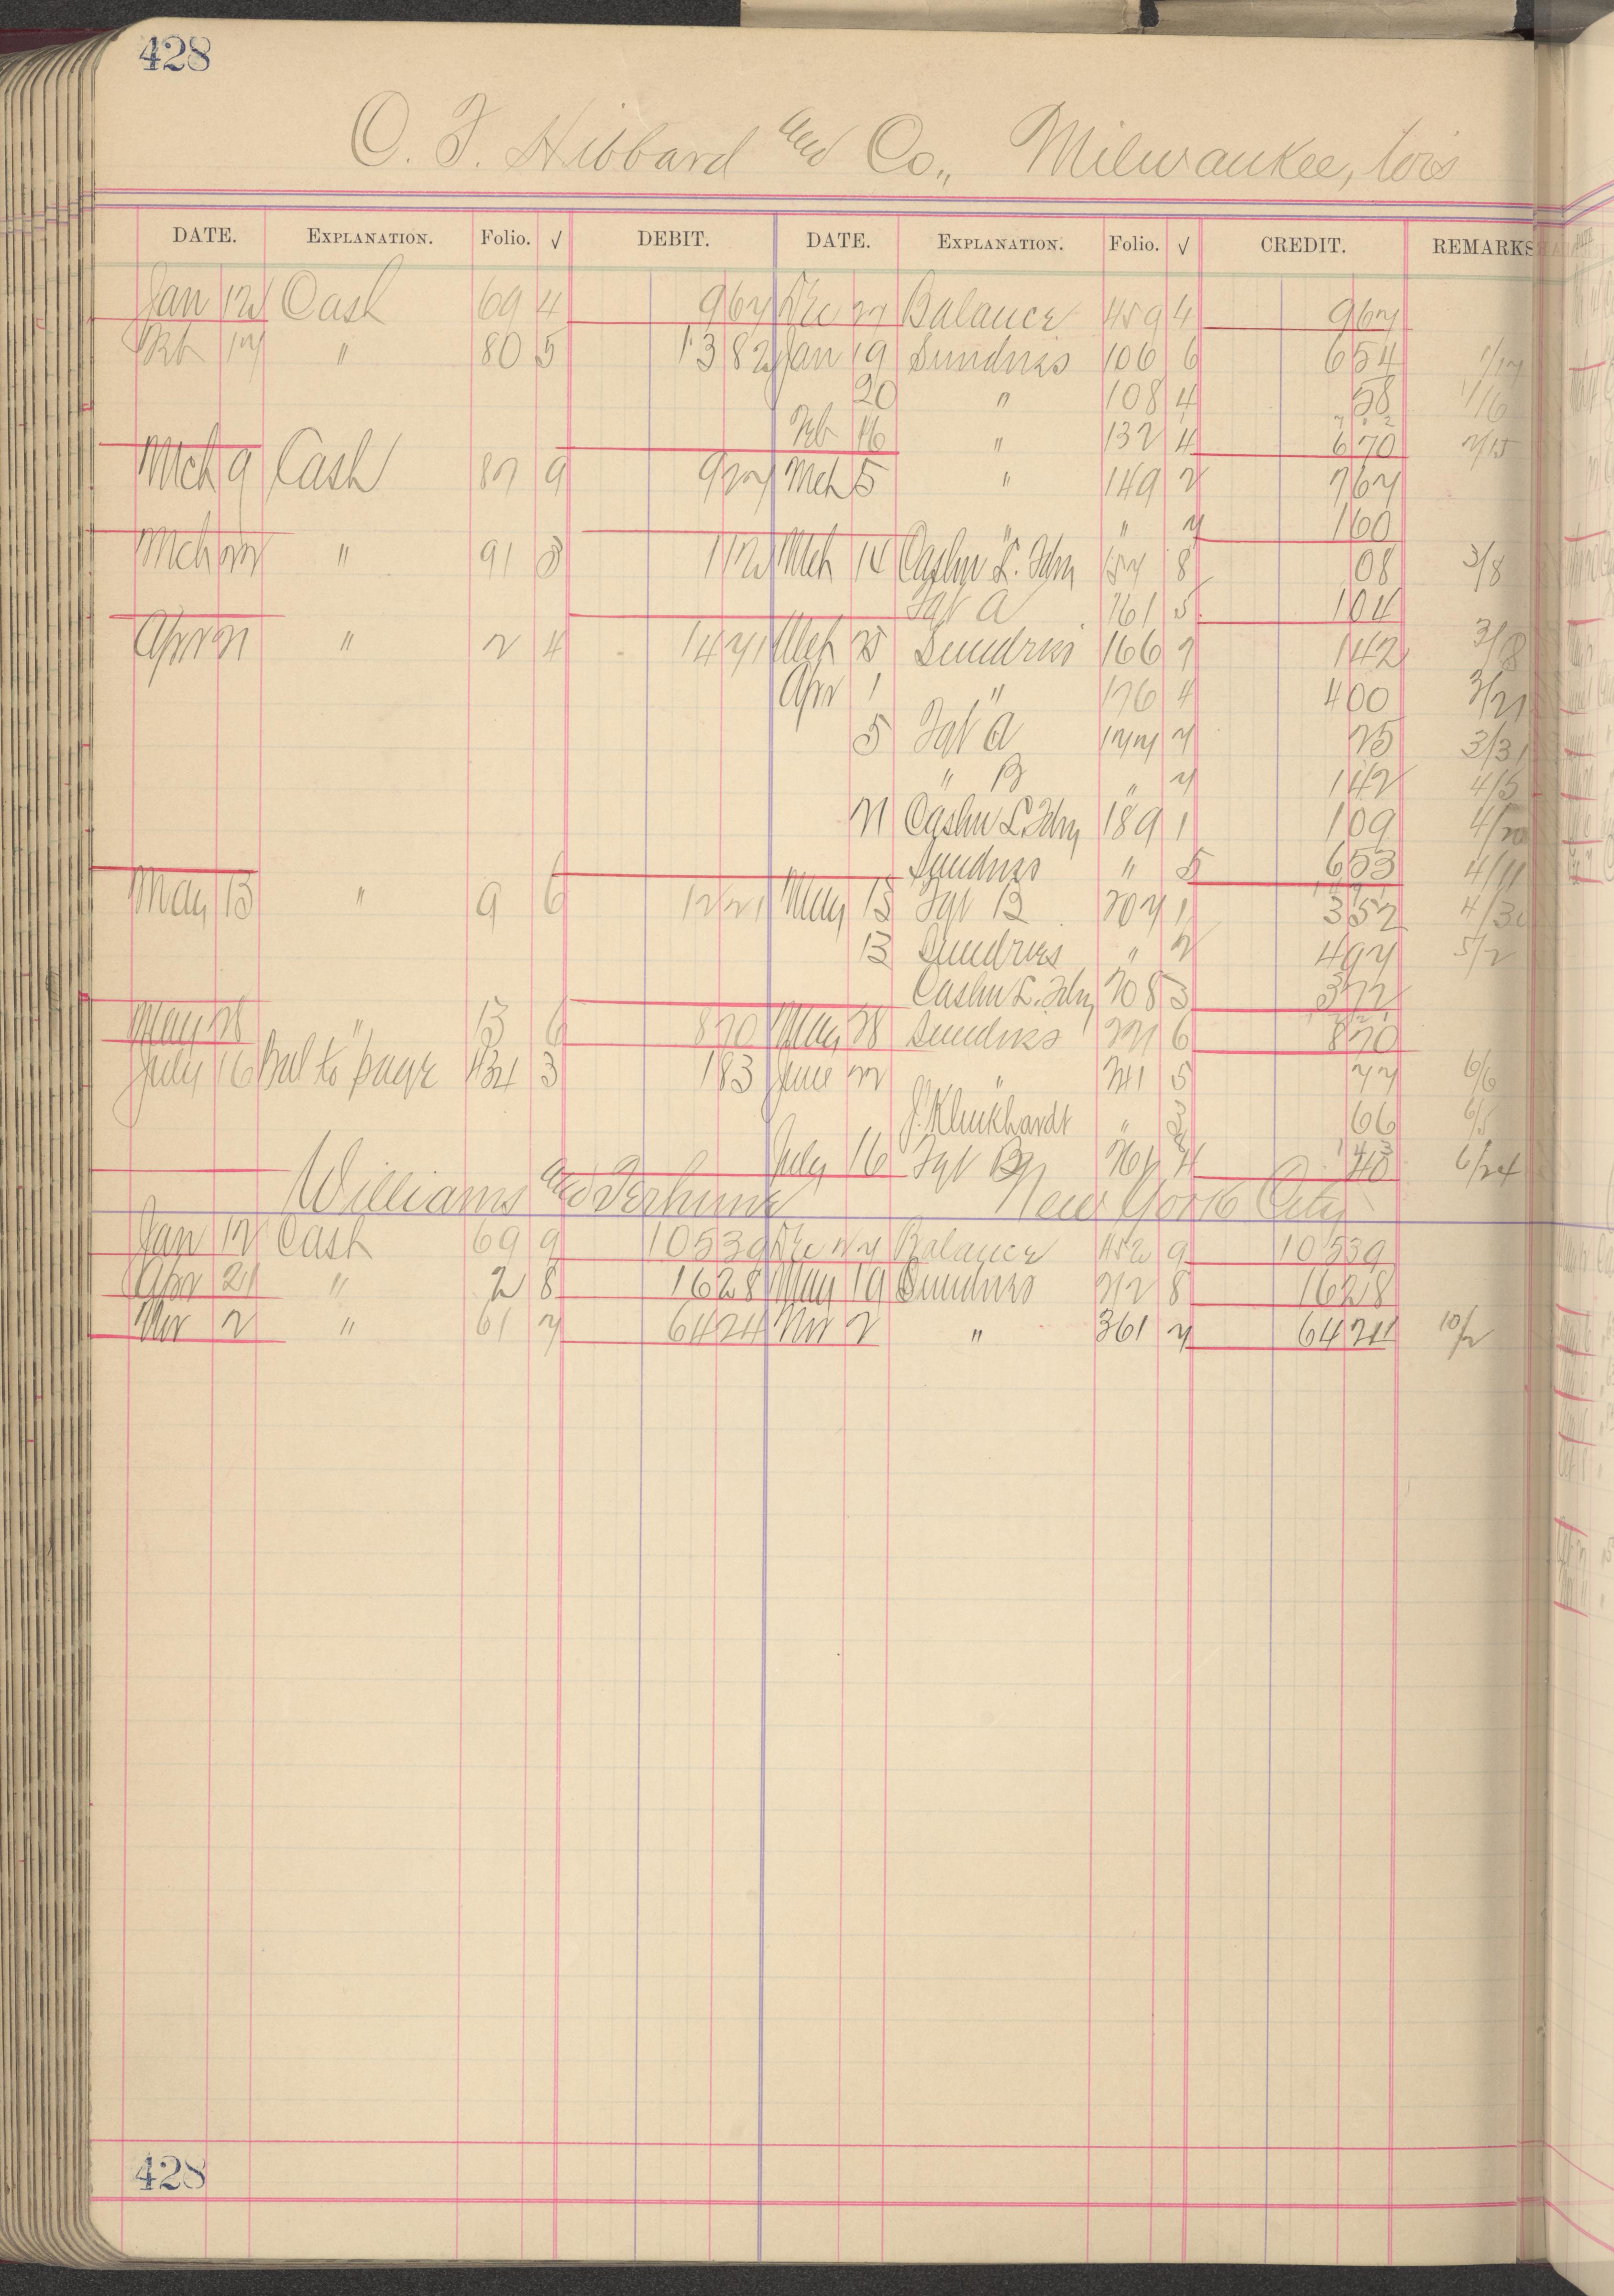 428
O. F. Hibbard and Co., Milwaukee, Wis
DATE. EXPLANATION. Folio. √ DEBIT. DATE. EXPLANATION. Folio. √ CREDIT. REMARKS
Jan 12 Cash 69 4 9 67 Dec 27 Balance 459 4 9 67
Feb 17 " 80 5 13 82 Jan 19 Sundries 106 6 6 54 1/17
20 " 108 4 58 1/16
Feb 16 " 132 4 6 70 2/15
Mch 9 Cash 87 9 9 27 Mch 5 " 149 2 7 67
" " 7 1 60
Mch 22 " 91 8 1 12 Mch 14 157 8 08 3/8
Fgt A 161 5 1 04
Apr 21 " 2 4 14 71 Mch 25 Sundries 166 7 1 42 3/18
Apr 1 " 176 4 4 00 3/21
5 Fgt A 177 7 25 3/31
" B " 7 1 42 4/5
21 189 1 1 09
Sundries " 5 6 53 4/11
May 13 " 9 6 12 21 May 13 Fgt B 207 1 3 52 4/30
13 Sundries " 2 4 97 5/2
208 3 3 72
May 28 " 13 6 8 20 May 28 Sundries 221 6 8 20
July 16 Bal to page 434 3 1 83 June 22 " 241 5 77 6/6
J. Klinkhardt " 3 66
July 16 Fgt B 40 6/24
Williams and Terhune New York City
Jan 12 Cash 69 9 105 39 Dec 27 Balance 452 9 105 39
Apr 21 " 2 8 16 28 May 19 Sundries 212 8 16 28
Nov 2 " 61 7 64 24 Nov 2 " 361 7 64 24 10/2
428